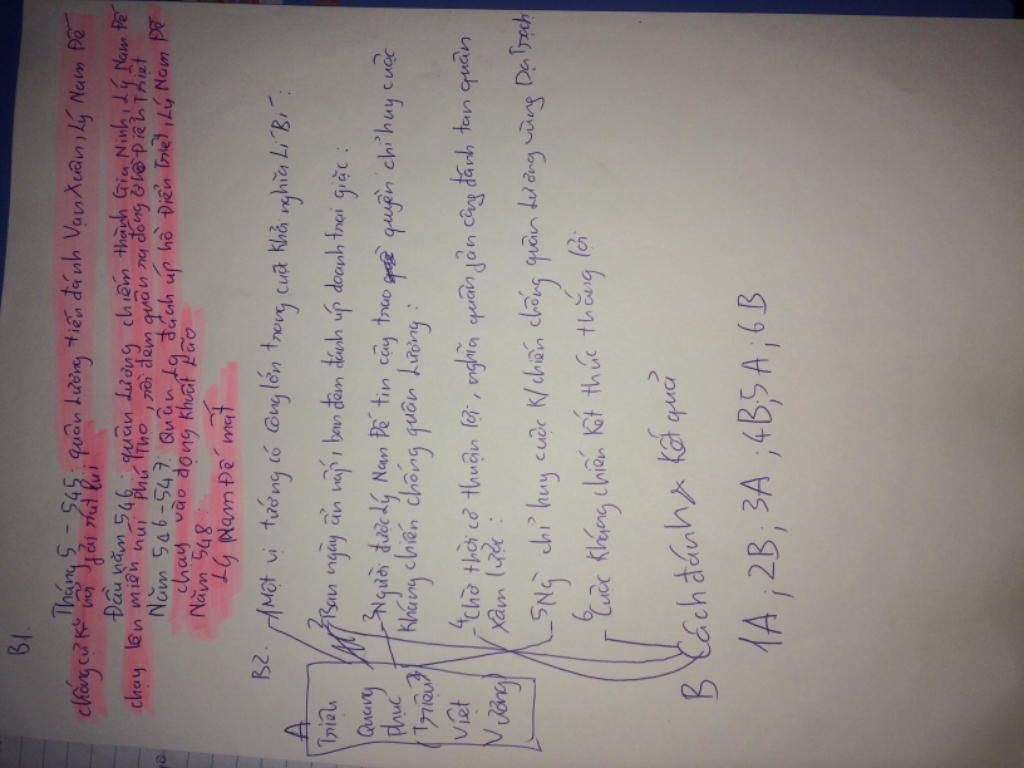 B1.
Tháng 5 - 545: quân Lương tiến đánh Vạn Xuân, Lý Nam Đế
chống cự k° nổi phải rút lui
Đầu năm 546: quân Lương chiếm thành Gia Ninh, Lý Nam Đế
chạy lên miền núi Phú Thọ, rồi đem quân ra đóng ở hồ Điển Triệt
Năm 546-547: Quân Lg đánh úp hồ Điển Triệt, Lý Nam Đế
chạy vào động Khuất Lão
Năm 548:
Lý Nam Đế mất
B2.
1 Một vị tướng có công lớn trong cuộc khởi nghĩa Lí Bí:
2 Ban ngày ẩn nấp, ban đêm đánh úp doanh trại giặc:
3 Người được Lý Nam Đế tin cậy trao quyền chỉ huy cuộc
kháng chiến chống quân Lương:
4 Chờ thời cơ thuận lợi, nghĩa quân phản công đánh tan quân
xâm lược:
5 Ng` chỉ huy cuộc k/chiến chống quân Lương vùng Dạ Trạch
6 Cuộc kháng chiến kết thúc thắng lợi
A
Triệu
Quang
Phục
(Triệu
Việt
Vương)
B Cách đánh x kết quả
1A; 2B; 3A; 4B; 5A; 6B